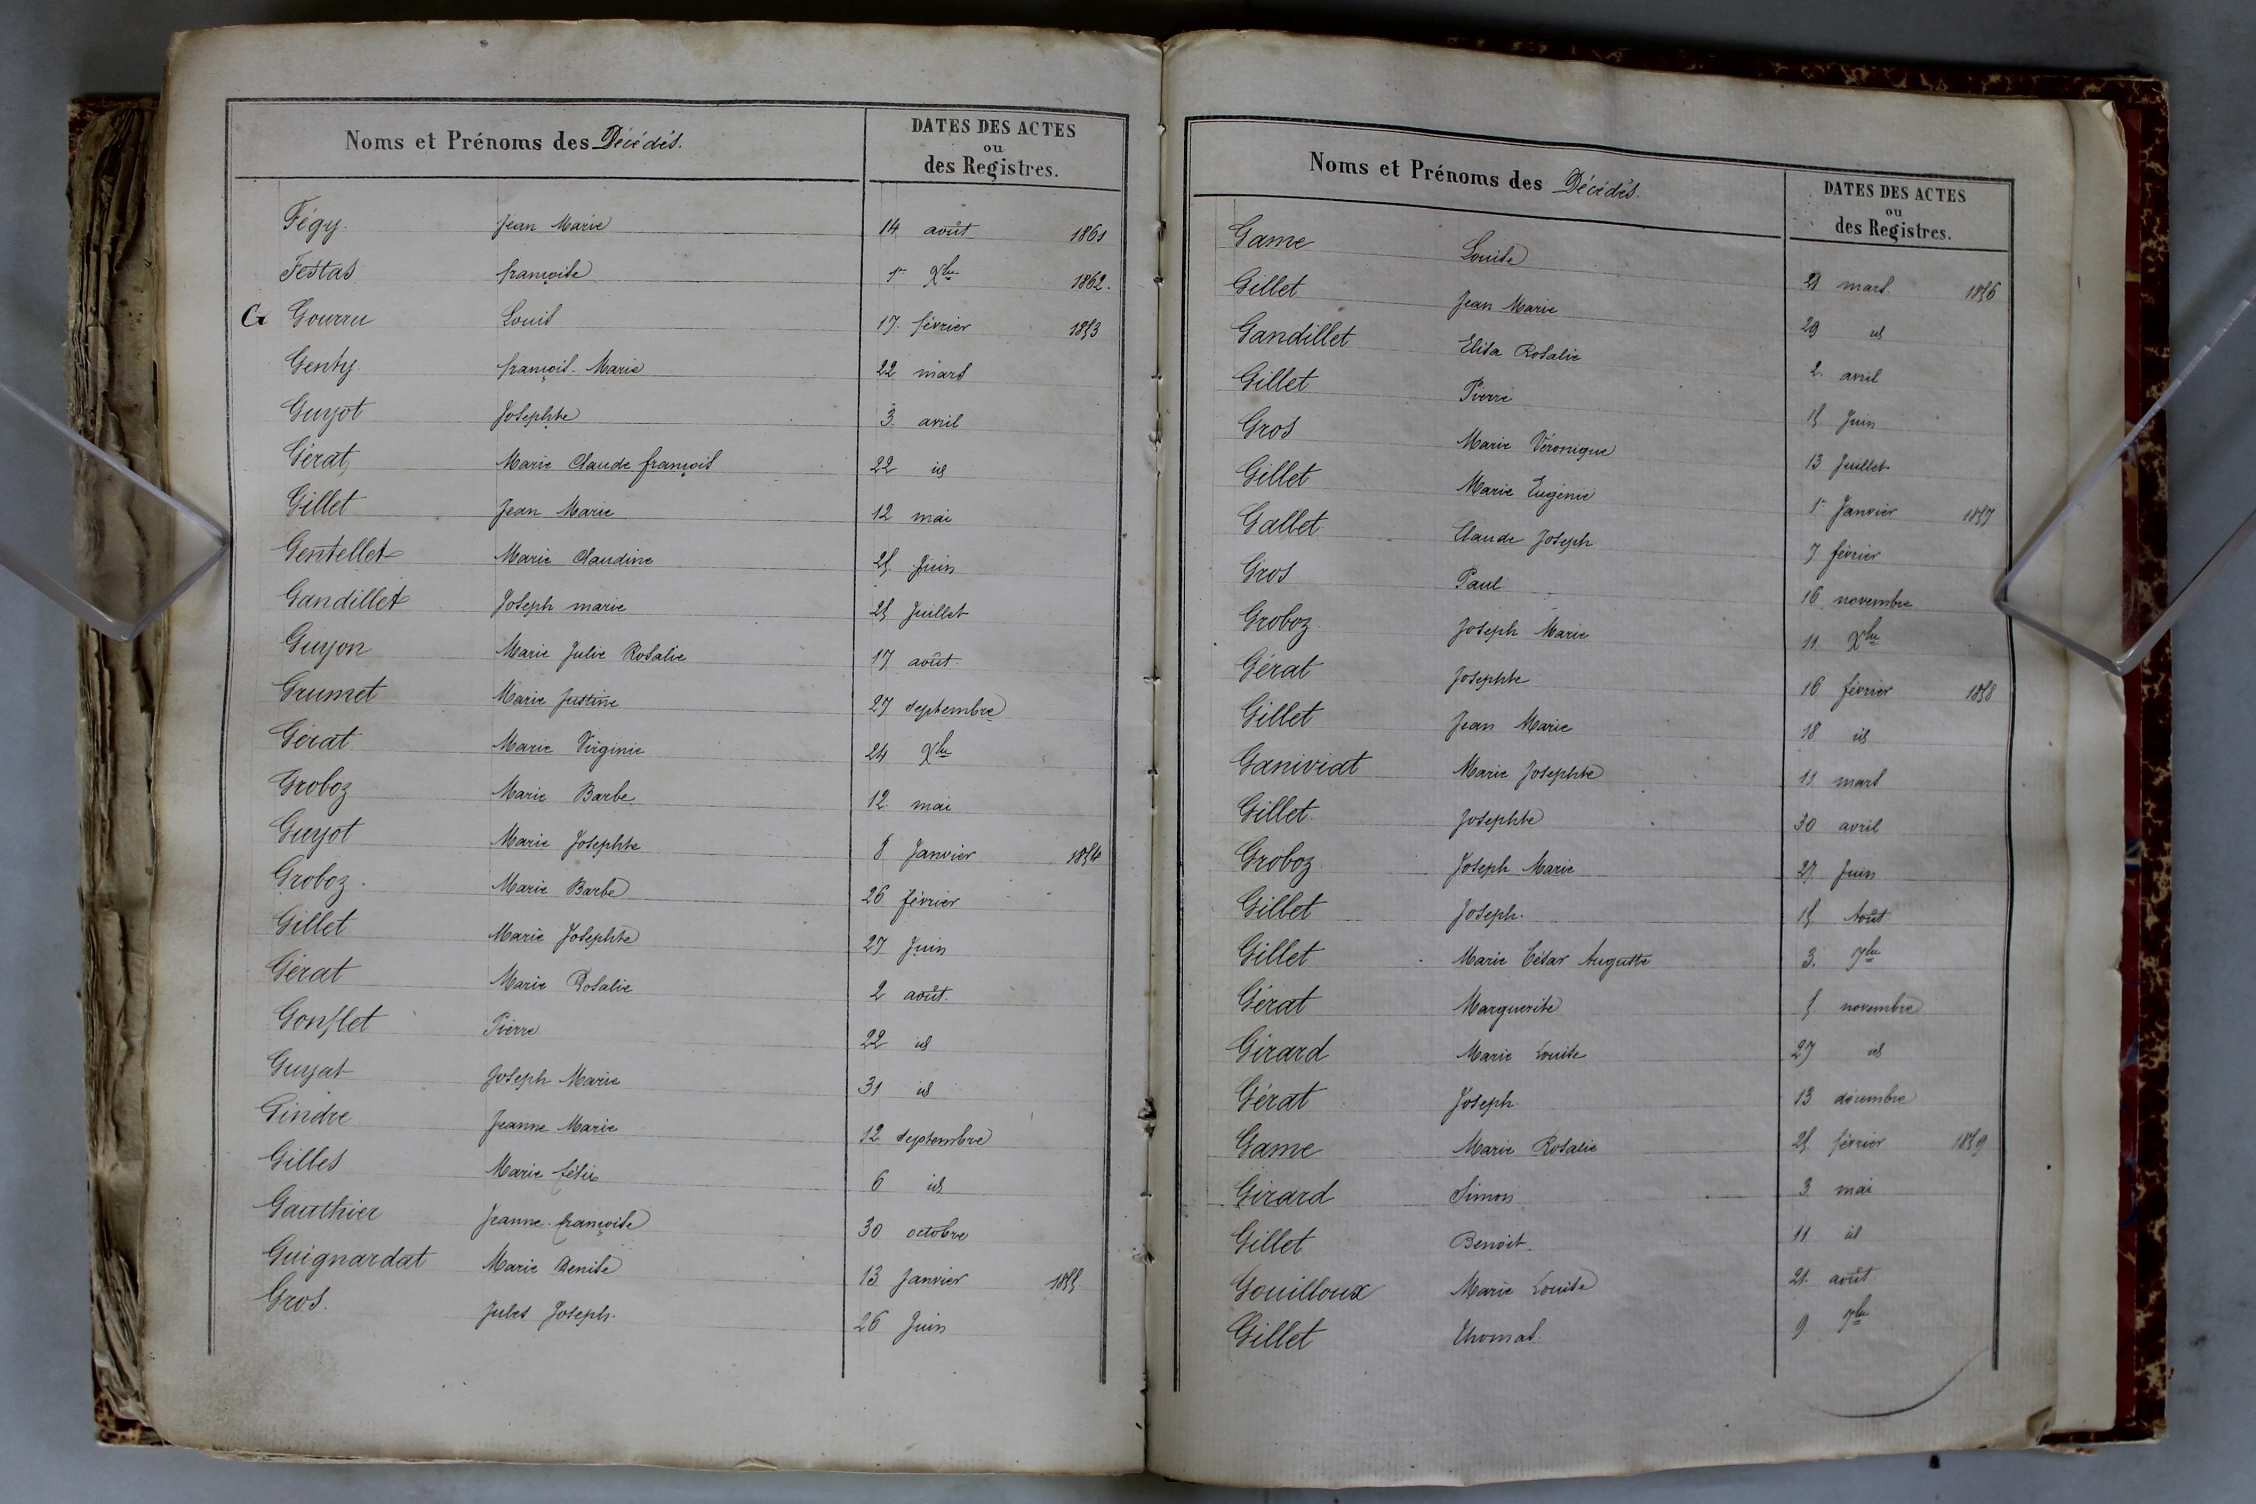 Noms et Prénoms des Décédés. DATES DES ACTES
ou
des Registres.
Fégy. Jean Marie 14 août 1861
Festas françoise 1er Xbre 1862.
G Gourru Louis 17. février 1853
Genty françois-Marie 22 mars
Guyot Josephte 3. avril
Gérat Marie Claude françois 22 id
Gillet Jean Marie 12 mai
Gentellet Marie Claudine 25 Juin
Gandillet Joseph marie 25 Juillet
Guyon Marie Julie Rosalie 17 août
Grumet Marie Justine 27 septembre
Gérat Marie Virginie 24 Xbre
Groboz Marie Barbe 12 mai
Guyot Marie Josephte 8 Janvier 1854
Groboz. Marie Barbe 26 février
Gillet Marie Josephte 27 Juin
Gérat Marie Rosalie 2 août.
Gonflet Pierre 22 id
Guyat Joseph Marie 31 id
Gindre Jeanne Marie 12 septembre
Gilles Marie félix 6 id
Gauthier Jeanne-françoise 30 octobre
Guignardat Marie Denise 13 Janvier 1855
Gros. Jules Joseph. 26 Juin
Noms et Prénoms des Décédés. DATES DES ACTES
ou
des Registres.
Game Louise 21 mars 1856
Gillet Jean Marie 29 id
Gandillet Elisa Rosalie 2. avril
Gillet Pierre 15 Juin
Gros Marie Véronique 13 Juillet
Gillet Marie Eugénie 1er Janvier 1857
Gallet Claude Joseph 7 février
Gros Paul 16 novembre
Groboz Joseph Marie 11 Xbre
Gérat Josephte 16 février 1858
Gillet Jean Marie 18 id
Ganiviat Marie Josephte 11 mars
Gillet Josephte 30 avril
Groboz Joseph Marie 27 Juin
Gillet Joseph. 15 Août
Gillet Marie César Auguste 3. 7bre
Gérat Marguerite 5 novembre
Girard Marie Louise 27 id
Gérat Joseph 13 décembre
Game Marie Rosalie 25 février 1859
Girard Simon 3 mai
Gillet Benoit 11 id
Gouilloux Marie Louise 21. août
Gillet Thomas. 9 7bre